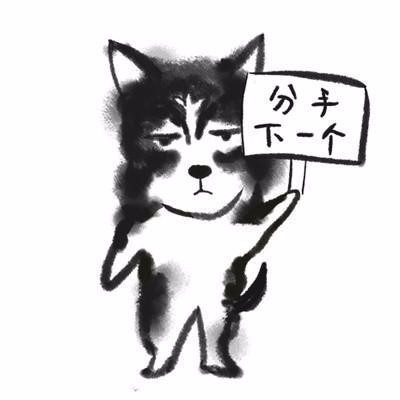 分手
下一个